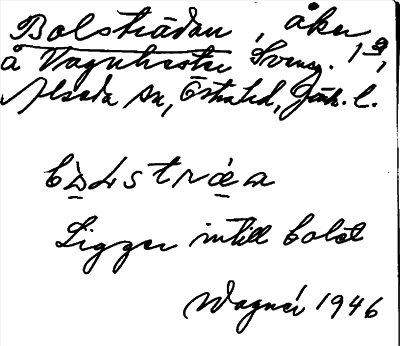 Bolstrādan, åker
å Vagnhester Sveneg. 1 9,
Alseda sn, Östra hd, Jönk. l.
bòlstræa
Ligger intill bolet
Wagnér 1946